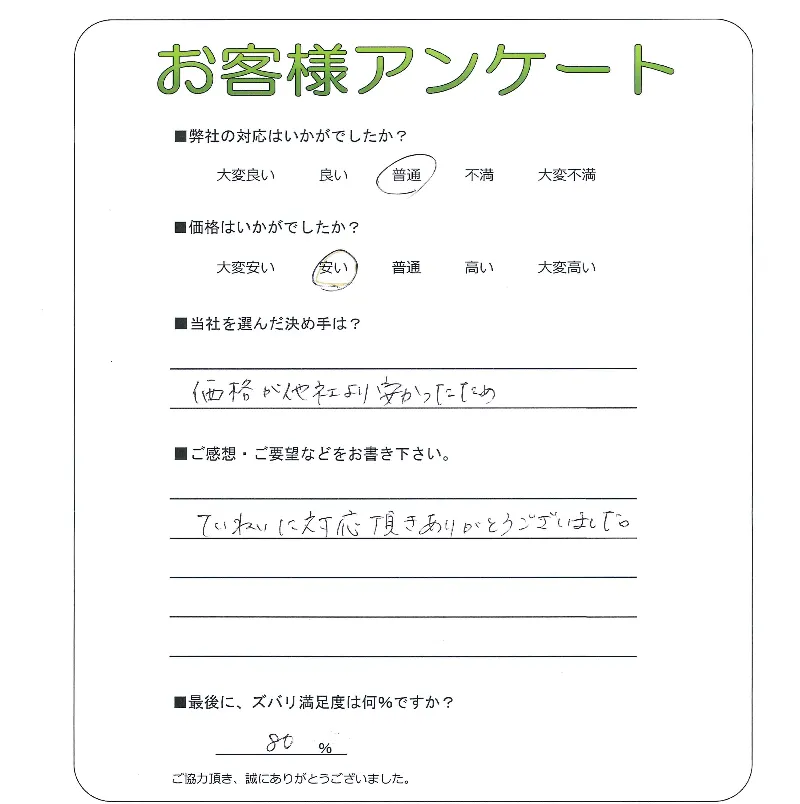 お客様アンケート
■弊社の対応はいかがでしたか？
大変良い 良い 普通 不満 大変不満
■価格はいかがでしたか？
大変安い 安い 普通 高い 大変高い
■当社を選んだ決め手は？
価格が他社より安かったため
■ご感想・ご要望などをお書き下さい。
ていねいに対応頂きありがとうございました。
■最後に、ズバリ満足度は何%ですか？
80 %
ご協力頂き、誠にありがとうございました。